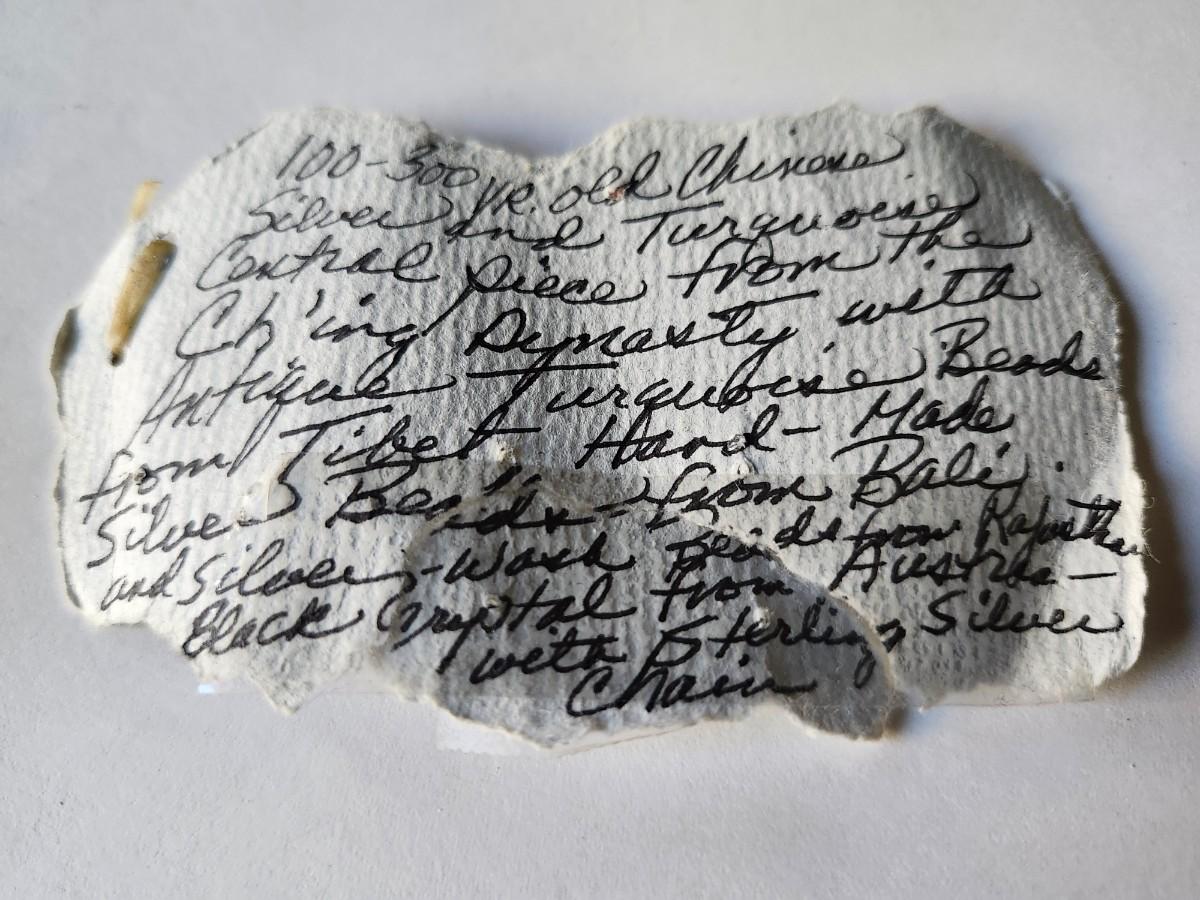 100-300 yr. old Chinese
Silver and Turquoise
Central piece from the
Ch'ing Dynasty, with
Antique Turquoise Beads
from Tibet Hand-Made
Silver Beads - from Bali
and Silver-Wash Beads from Rajasthan
Black Crystal from Austria-
with Sterling Silver
Chain